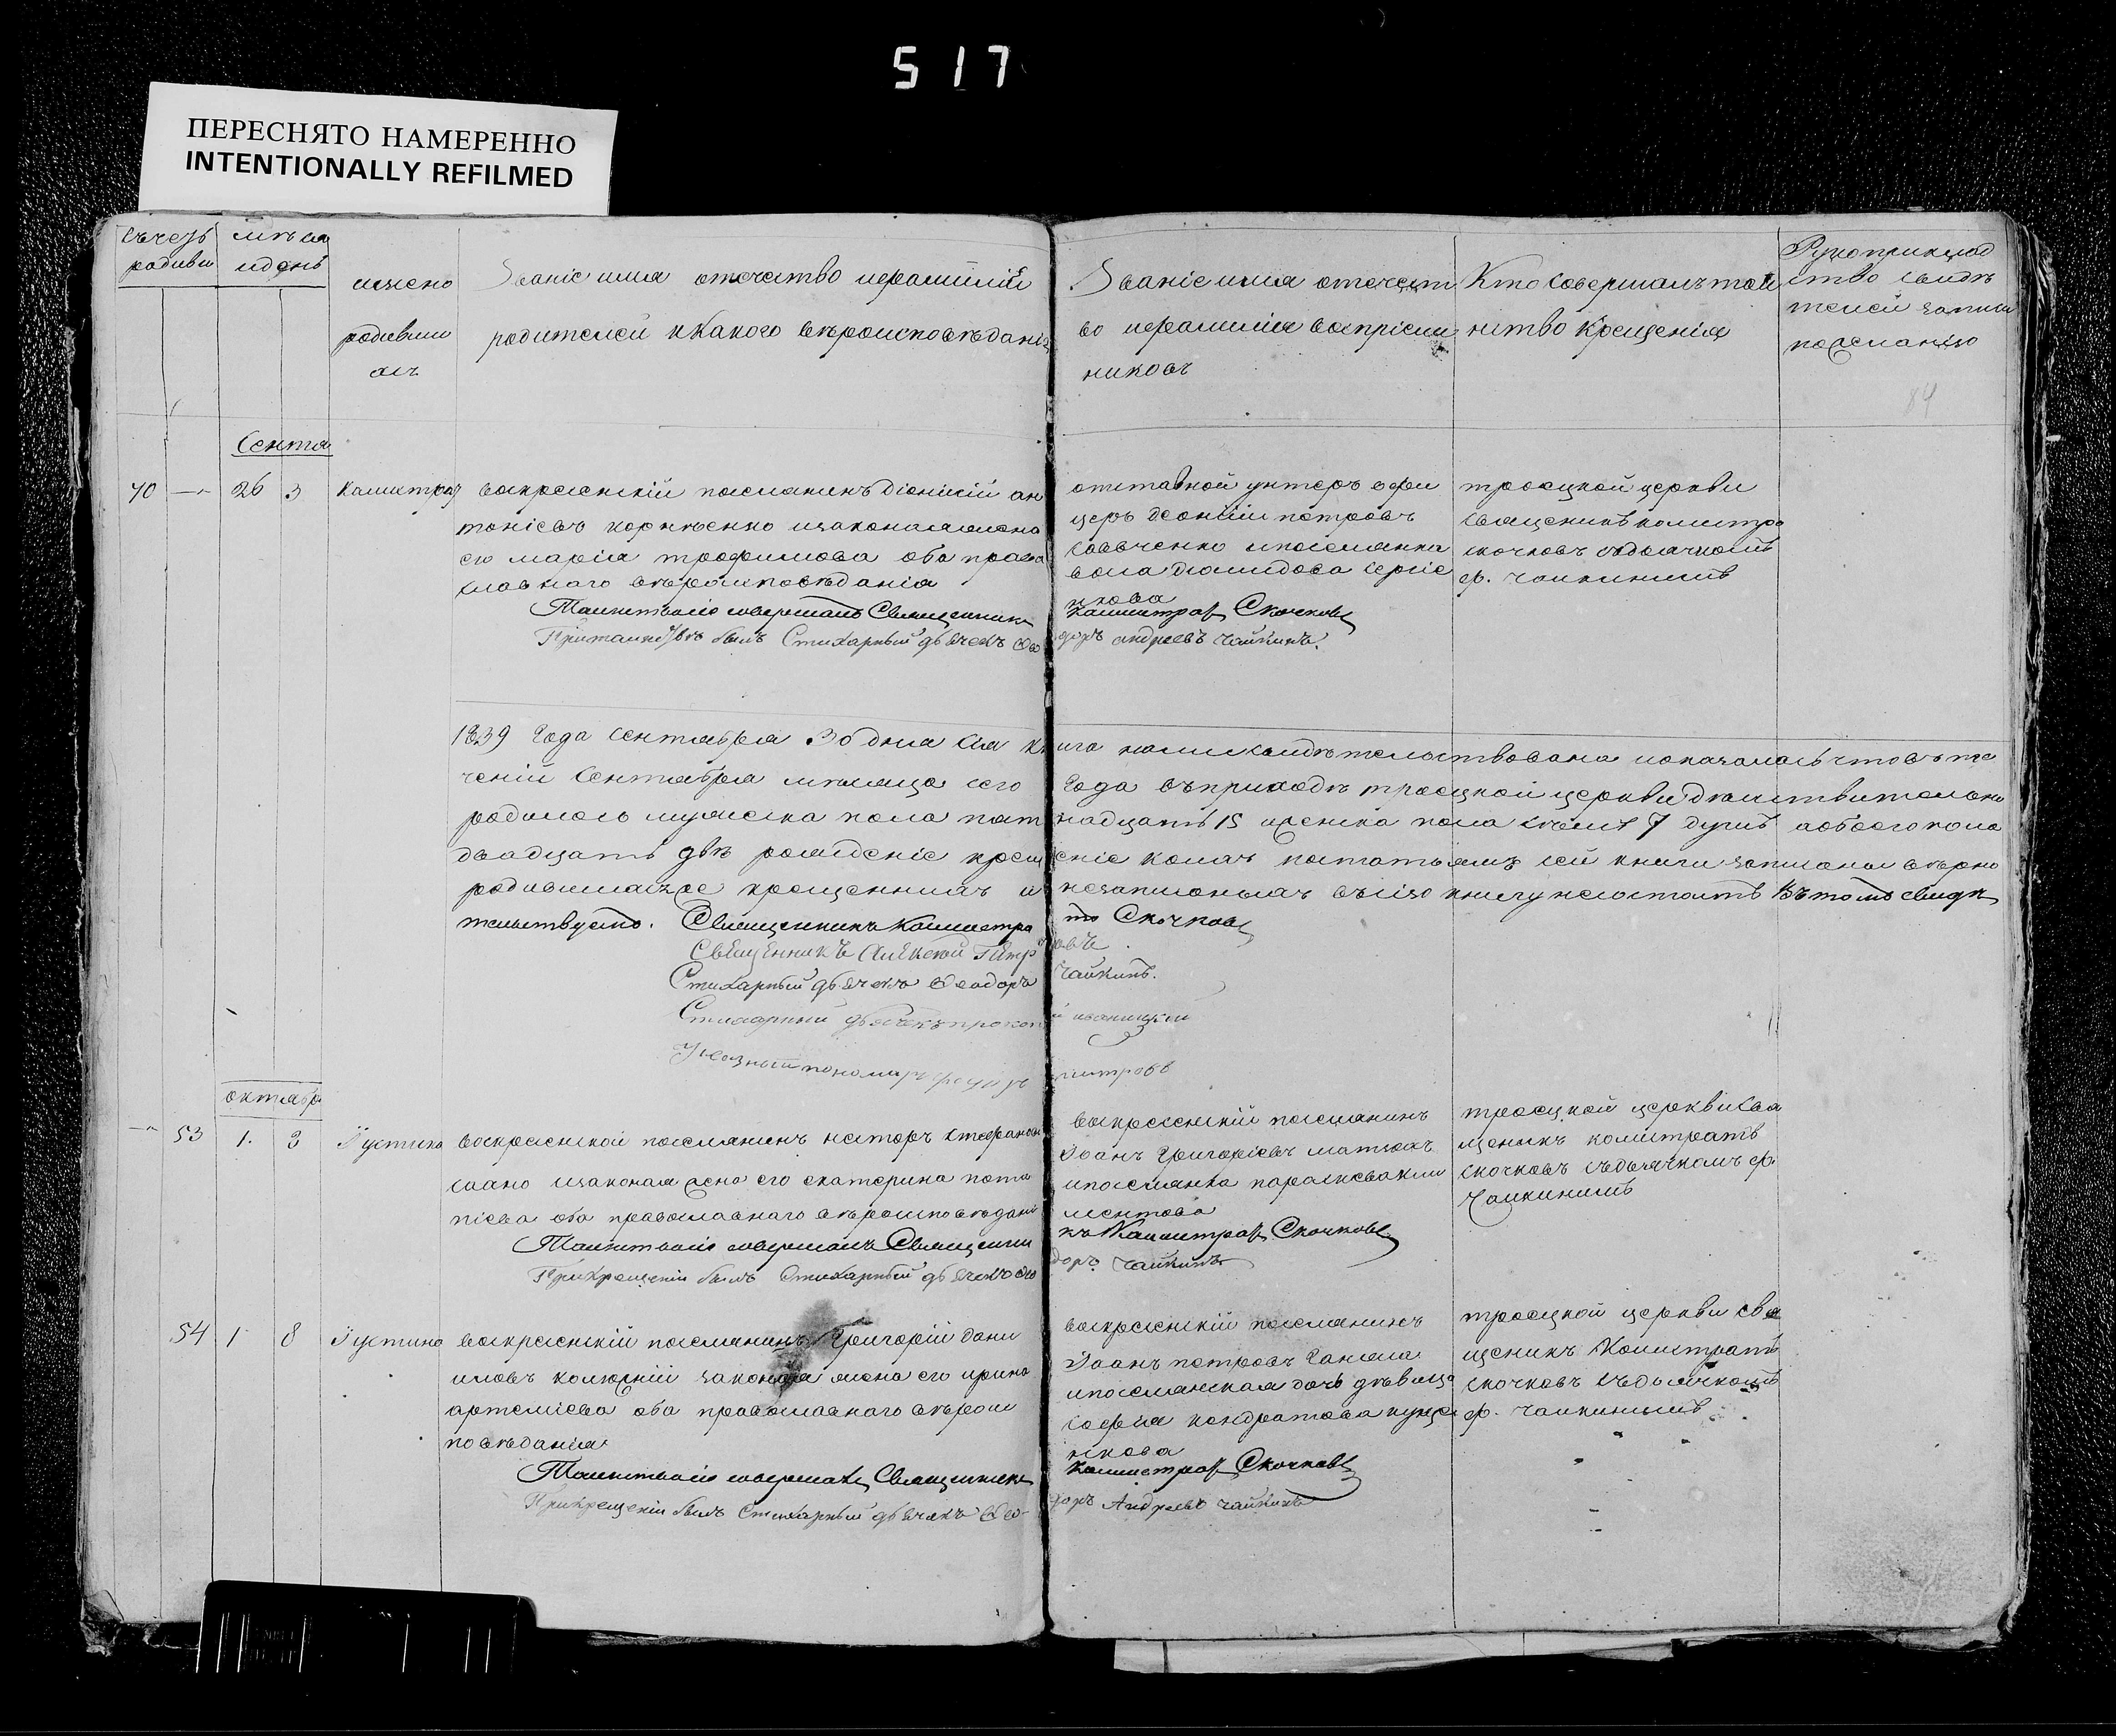 517
ПЕРЕСНЯТО НАМЕРЕННО
INTENTIONALLY REFILMED
мѣся
идень
имено
родивши
Званіе имя отечество ифамилія
родителей икакого вѣроисповѣданія
Званіе имя отечест
во ифамилія воспріем
никовъ
Кто совершалъ таи
нство крещенія
Рукоприклад
ство свидѣ
телей записи
пожеланію
84
Сентя
70 26 3 Калистрат
воскресенскій поселянинъ діонисій ан
тоніевъ корнѣенко изаконная жена
его марія трофимова оба право
славнаго вѣроисповѣданія
Таинство сіе совершалъ Священникъ Калистратъ Скочковъ
При таинствѣ былъ Стихарный дьячекъ Ѳео доръ андреевъ чайкинъ.
отставной унтеръ офи
церъ леонтій петровъ
савченко ипоселянка
сергіе
нкова
троецкой церкви
священикъ калистра
скочковъ сдьячкомъ
ф. чаикинымъ
1839 года сентября 30 дня сія книга нами свидѣтельствована иоказалось что въ те
ченіи сентября месяца сего года въприходѣ троецкой церкви дѣиствительно
родилось мужеска пола пят надцать 15 аженска пола семь 7 душъ аобоего пола
двадцать двѣ рожденіе крещ еніе коихъ постатьямъ сей книги записаны вѣрно
родившихся крещенныхъ и незаписаныхъ въсію книгу несостоитъ Въ томъ свидѣ
тельствуемъ. Священникъ Калистратъ Скочковъ
Священникъ Алексей Петр овъ
Стихарный дьячекъ Ѳеодоръ Чайкинъ.
Стихарный дьячекъ прокопій иваницкій
Указный пономарь митровъ
октябр
53 1. 3 Іустина
воскресенской поселянинъ несторъ стефановъ
изаконая жена его екатерина пота
піева оба православнаго вѣроисповѣдані
Таинство сіе совершалъ Священникъ Калистратъ Скочковъ
При крещеніи былъ Стихарный дьячекъ Ѳео доръ Чайкинъ
воскресенскій поселянинъ
Іоанъ Григоріевъ
ипоселянка параскева кли
ментова
троецкой церкви свя
щеникъ калистратъ
скочковъ съдьячкомъ ф.
Чаикинимъ
54 1 8 Іустина
воскресенскій поселянинъ Григорій дани
иловъ законная жена его ирина
артеміева оба православнаго вѣрои
повѣданія
Таинство сіе совершалъ Священникъ Калистратъ Скочковъ
При крещеніи былъ Стихарный дьячекъ Ѳео- доръ Андреевъ чайкинъ
воскресенскій поселянинъ
Іоанъ петровъ
ипоселянская дочь дѣвица
софія кондратова
нкова
троецкой церкви свя
щеникъ Калистратъ
скочковъ съдьячкомъ
ф. чаикинымъ